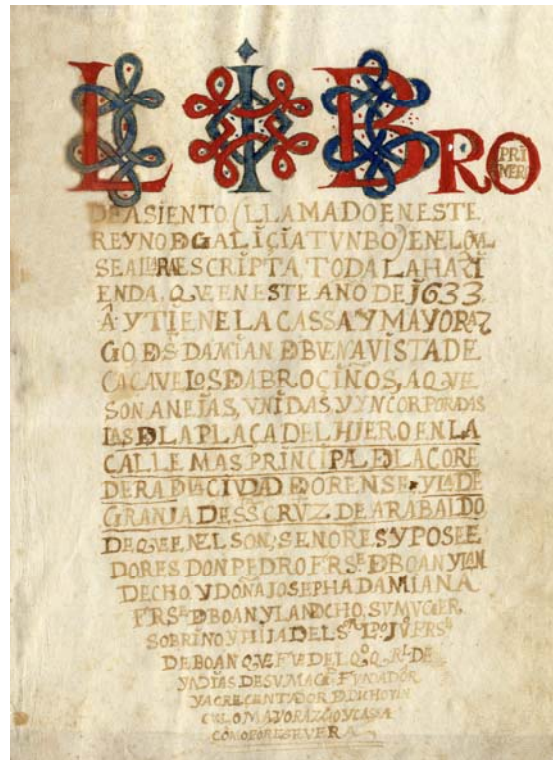 LIBRO PRIMERO
DE ASIENTO (LLAMADO EN ESTE
REYNO DE GALIÇIA TVNBO) EN EL QVAL
SE ALLARA ESCRIPTA, TODA LA HAZI
ENDA, QVE EN ESTE ANO DE 1633
Â Y TIENE LA CASSA Y MAYORAZ
GO DE S. DAMIAN DE BVENAVISTA DE
CACAVELOS DABROCIÑOS, A QVE
SON ANEIAS, VNIDAS Y YNCORPORADAS
LAS DE LA PLAÇA DEL HIERO EN LA
CALLE MAS PRINCIPAL DE LA CORE
DERA DE LA CIVDAD DE ORENSE Y LA DE
GRANJA DE SS CRVZ DE ARABALDO
DE QVE EN EL SON, SENORES Y POSEE
DORES DON PEDRO FRS DE BOAN Y LAN
DECHO Y DOÑA JOSEPHA DAMIANA
FRS DE BOAN Y LANDECHO, SV MVGIER,
SOBRINO Y HIJA DEL FRS
DE BOAN QVE FVE DEL DE
YNDIAS DE SV MAG FVNDADOR
Y ACRECENTADOR DE DICHO
MAYORAZGO Y CASSA
COMO POR ESE VERA